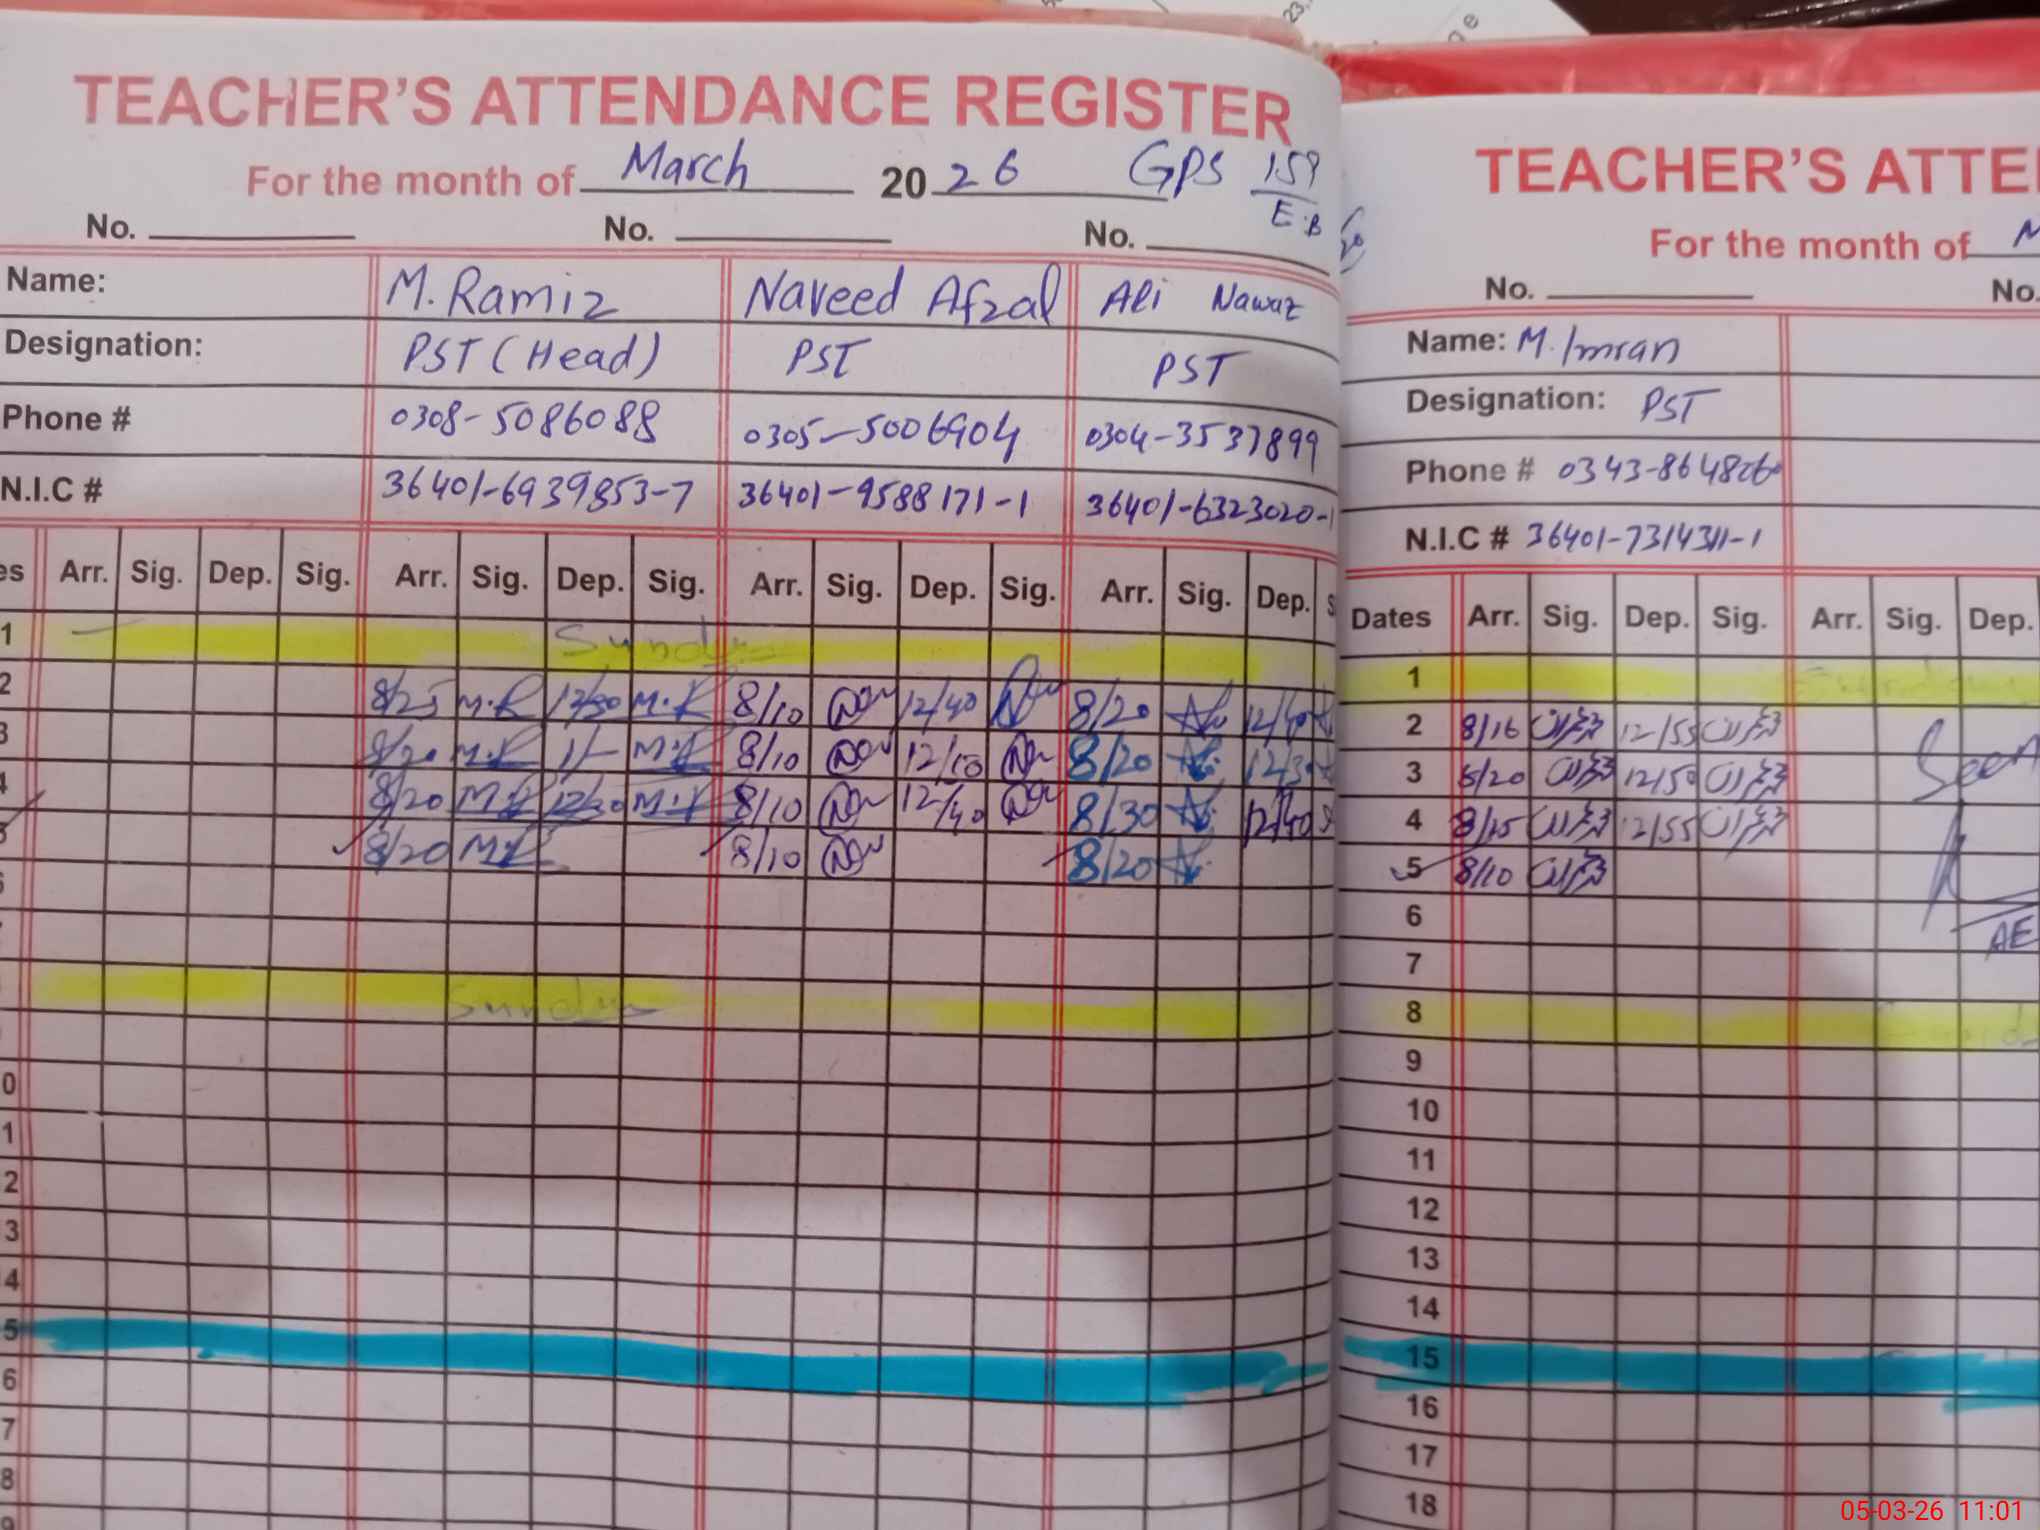 TEACHER'S ATTENDANCE REGISTER
For the month of March 2026 GPS 159
E.B
No. No. No.
Name: M. Ramiz Naveed Afzal Ali Nawaz
Designation: PST (Head) PST PST
Phone # 0308-5086088 0305-5006904 0304-3537899
N.I.C # 36401-6939853-7 36401-9588171-1 36401-6323020-1
es Arr. Sig. Dep. Sig. Arr. Sig. Dep. Sig. Arr. Sig. Dep. Sig. Arr. Sig. Dep. S
1 Sunday
2 8/25 M.R 12/30 M.R 8/10 12/40 8/20 12/40
3 8/20 M.R 1/- M.R 8/10 12/10 8/20 12/30
4 8/20 M.R 12/30 M.R 8/10 12/40 8/30 12/40
8/20 M.R 8/10 8/20
Sunday
0
1
2
3
4
5
6
7
8
TEACHER'S ATTE
For the month of M
No. No.
Name: M. Imran
Designation: PST
Phone # 0343-8648260
N.I.C # 36401-7314311-1
Dates Arr. Sig. Dep. Sig. Arr. Sig. Dep.
1 Sunday
2 8/16 12/55
3 8/20 12/50 Seen
4 8/25 12/55
5 8/10
6 AE
7
8
9
10
11
12
13
14
15
16
17
18
05-03-26 11:01